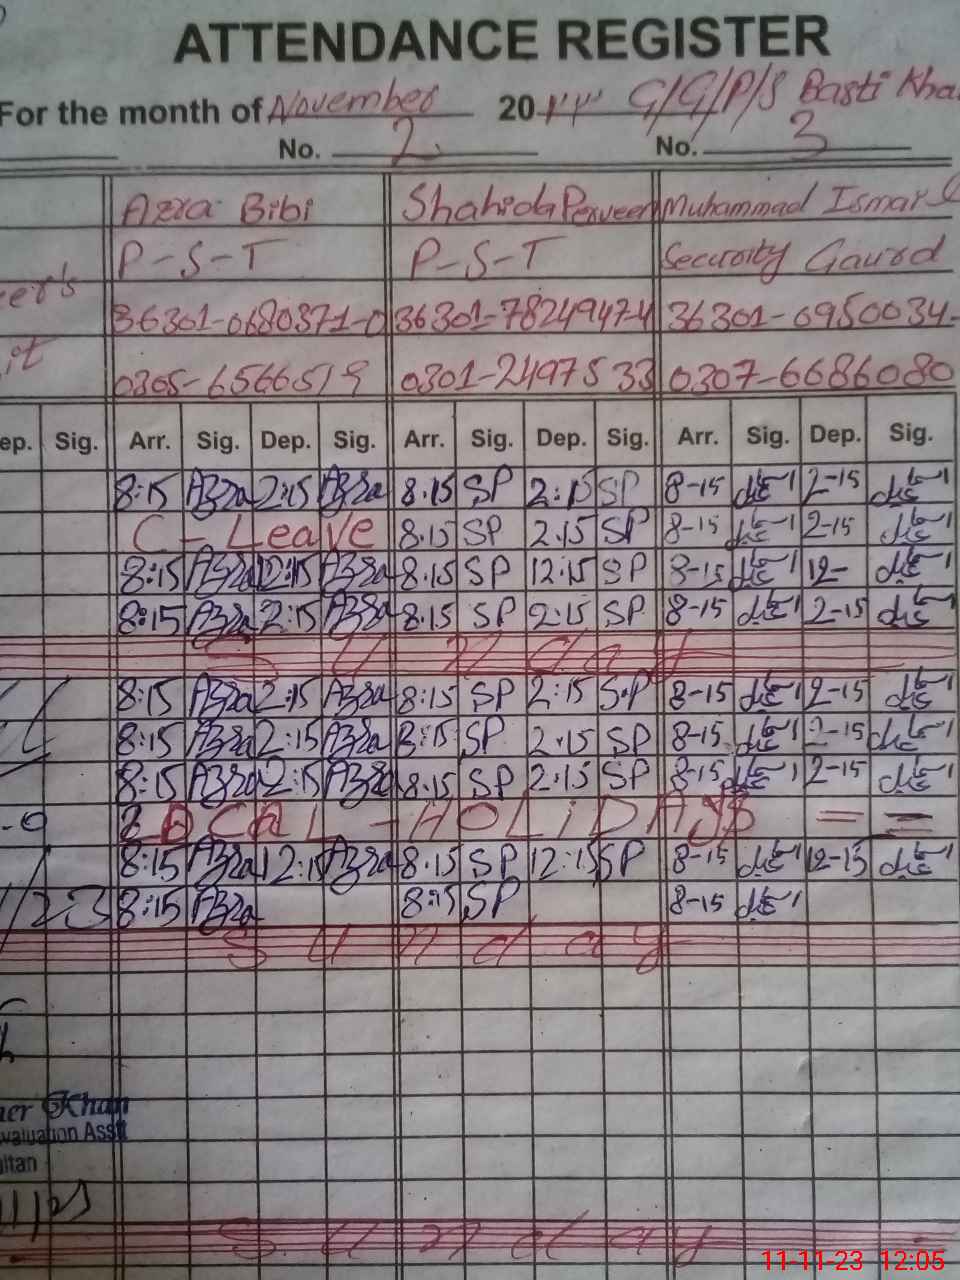 ATTENDANCE REGISTER
For the month of November 20 G/G/P/S Basti Kha
No. 2 No. 3
Azra Bibi Shahida Perveen Muhammad Ismail
P-S-T P-S-T Security Gaurd
36301-0680371-0 36301-78249474 36301-0950034-
0305-6566519 0301-2497533 0307-6686080
ep. Sig. Arr. Sig. Dep. Sig. Arr. Sig. Dep. Sig. Arr. Sig. Dep. Sig.
8:15 Azra 2:15 Azra 8.15 SP 2:15 SP 8-15 2-15
C-Leave 8.15 SP 2.15 SP 8-15 2-15
8:15 Azra 12:15 Azra 8.15 SP 12:15 SP 8-15 12-
8:15 Azra 2:15 Azra 8.15 SP 2:15 SP 8-15 2-15
Sunday
8:15 Azra 2:15 Azra 8:15 SP 2:15 S.P 8-15 2-15
8:15 Azra 2:15 Azra 8:15 SP 2.15 SP 8-15 2-15
8:15 Azra 2:15 Azra 8.15 SP 2:15 SP 8-15 2-15
LOCAL-HOLiDAYS
8:15 Azra 12:15 Azra 8.15 SP 12:15 SP 8-15 12-15
/23 8:15 Azra 8:15 SP 8-15
Sunday
er Khan
valuation Asstt
ltan
11/23
Sunday
11-11-23 12:05